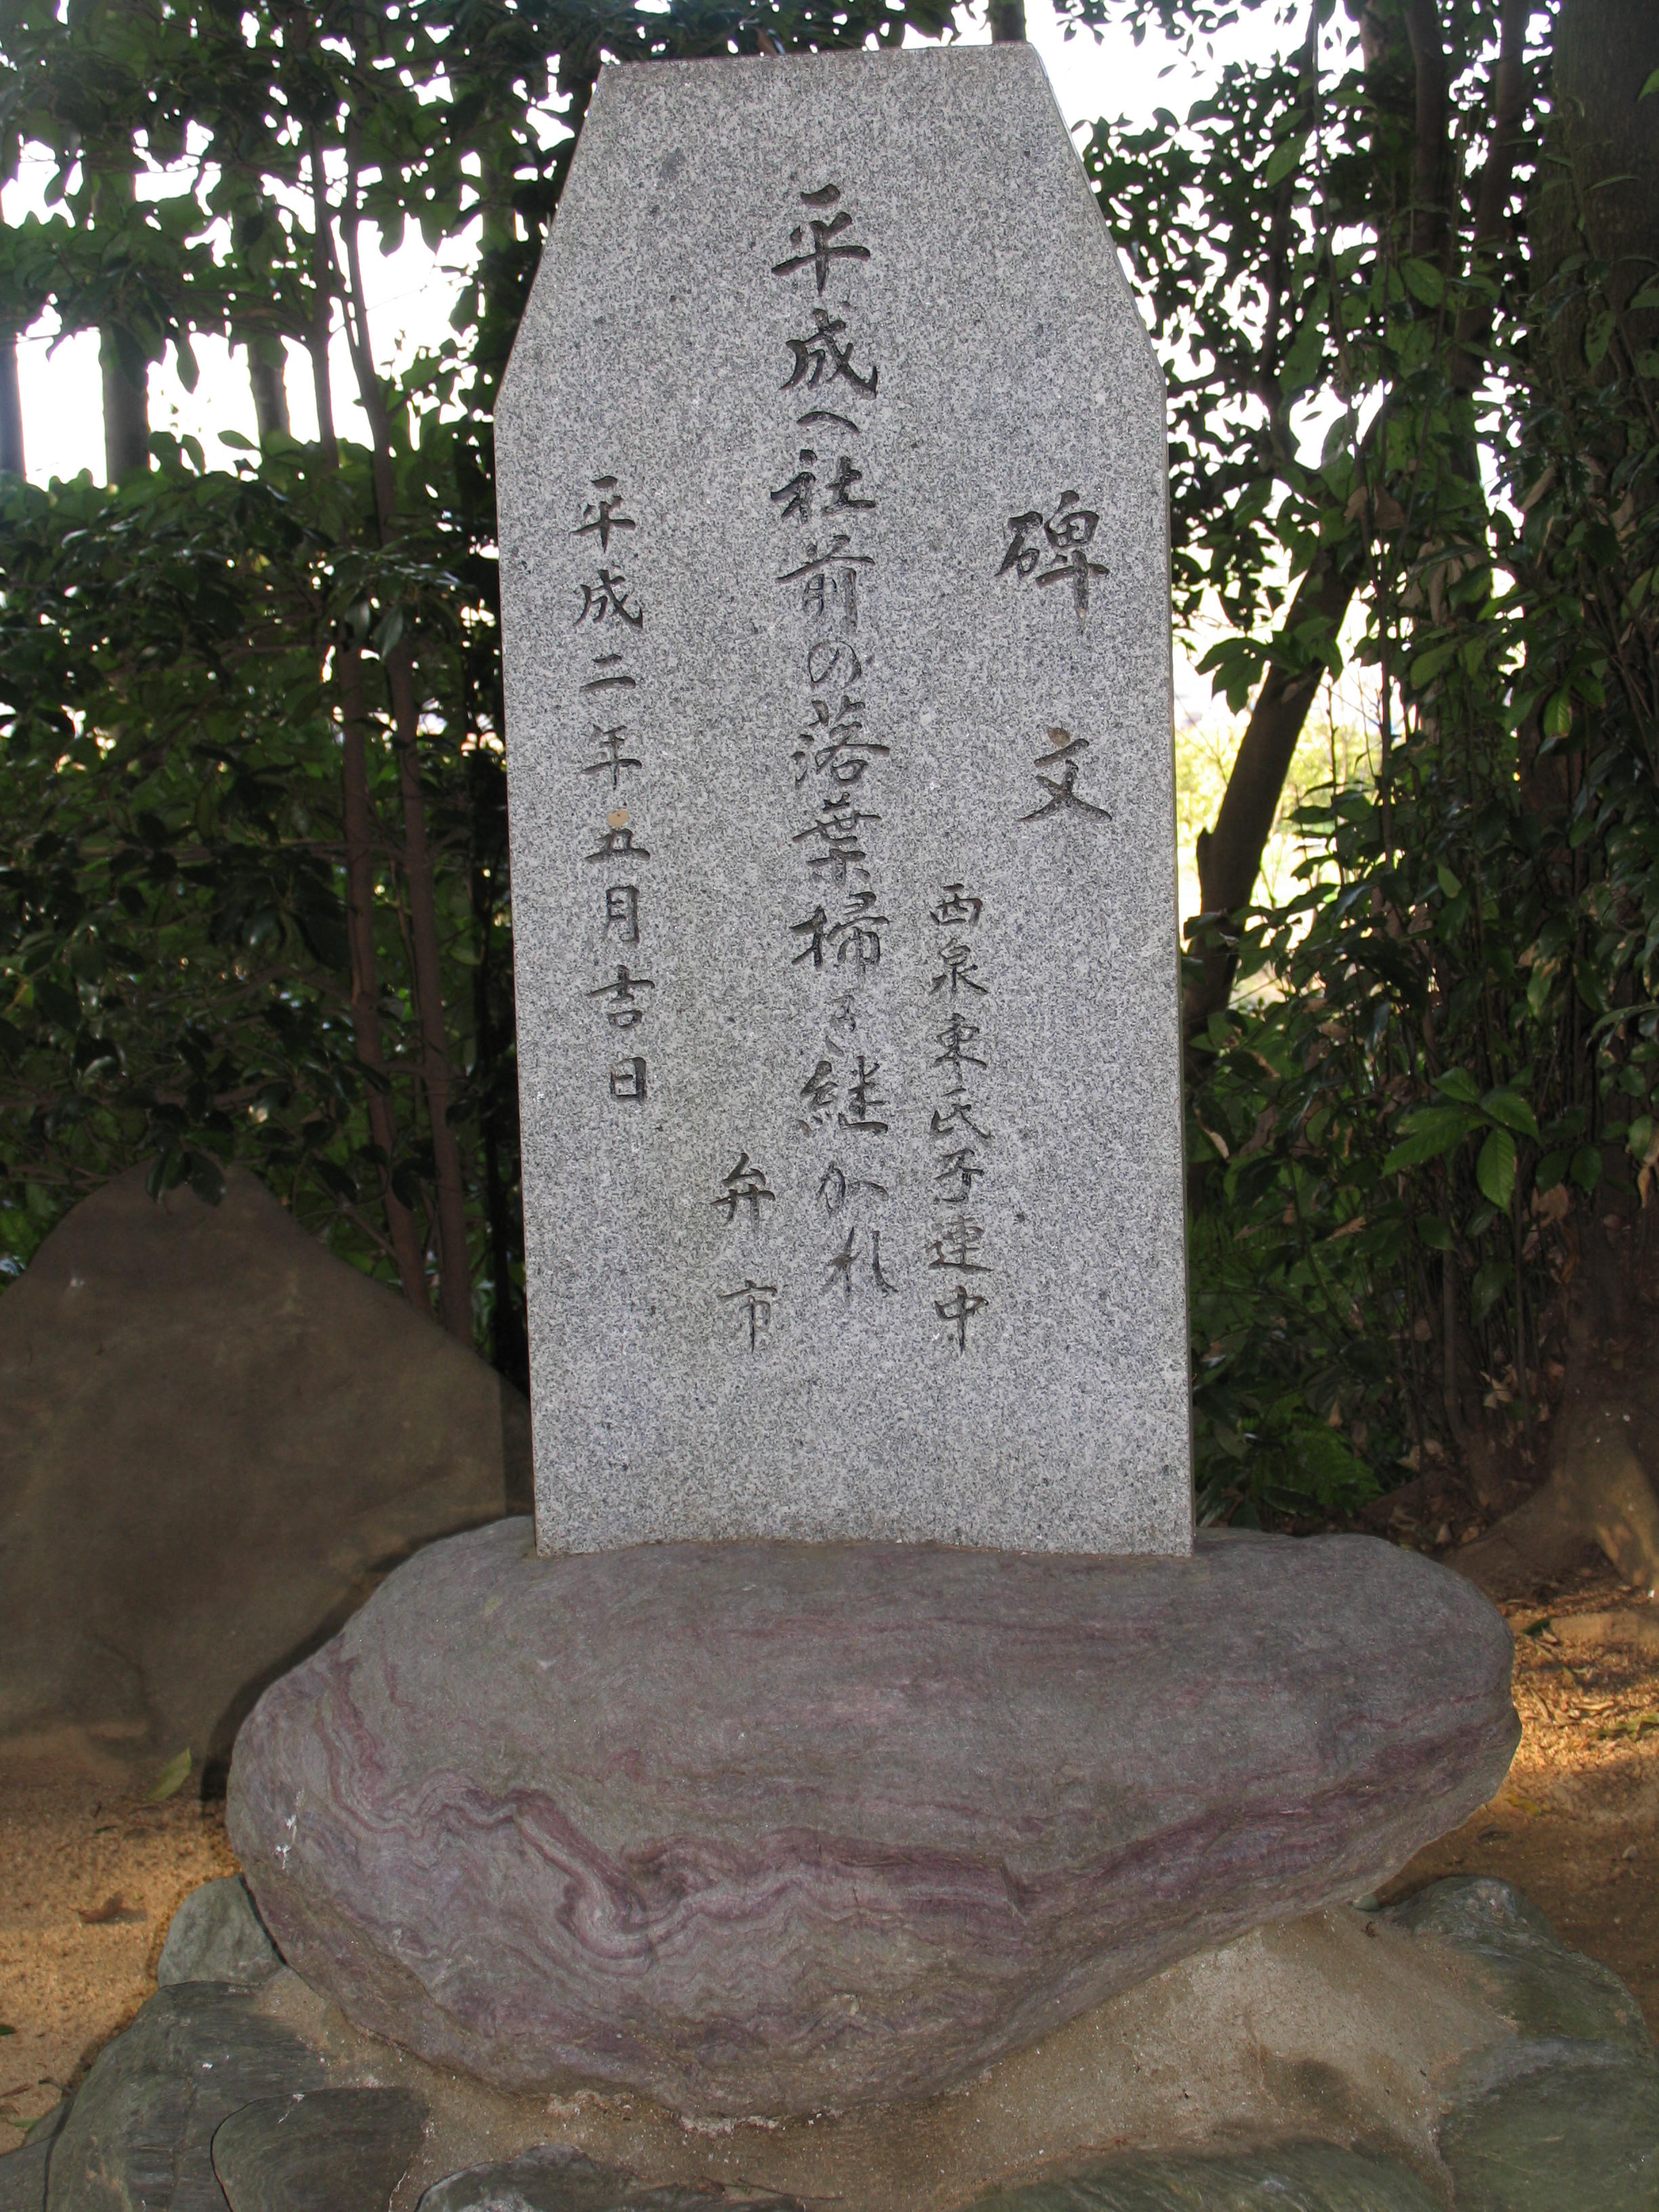 碑文
西泉東氏子連中
平成へ社前の落葉掃き継がれ
弁市
平成二年五月吉日